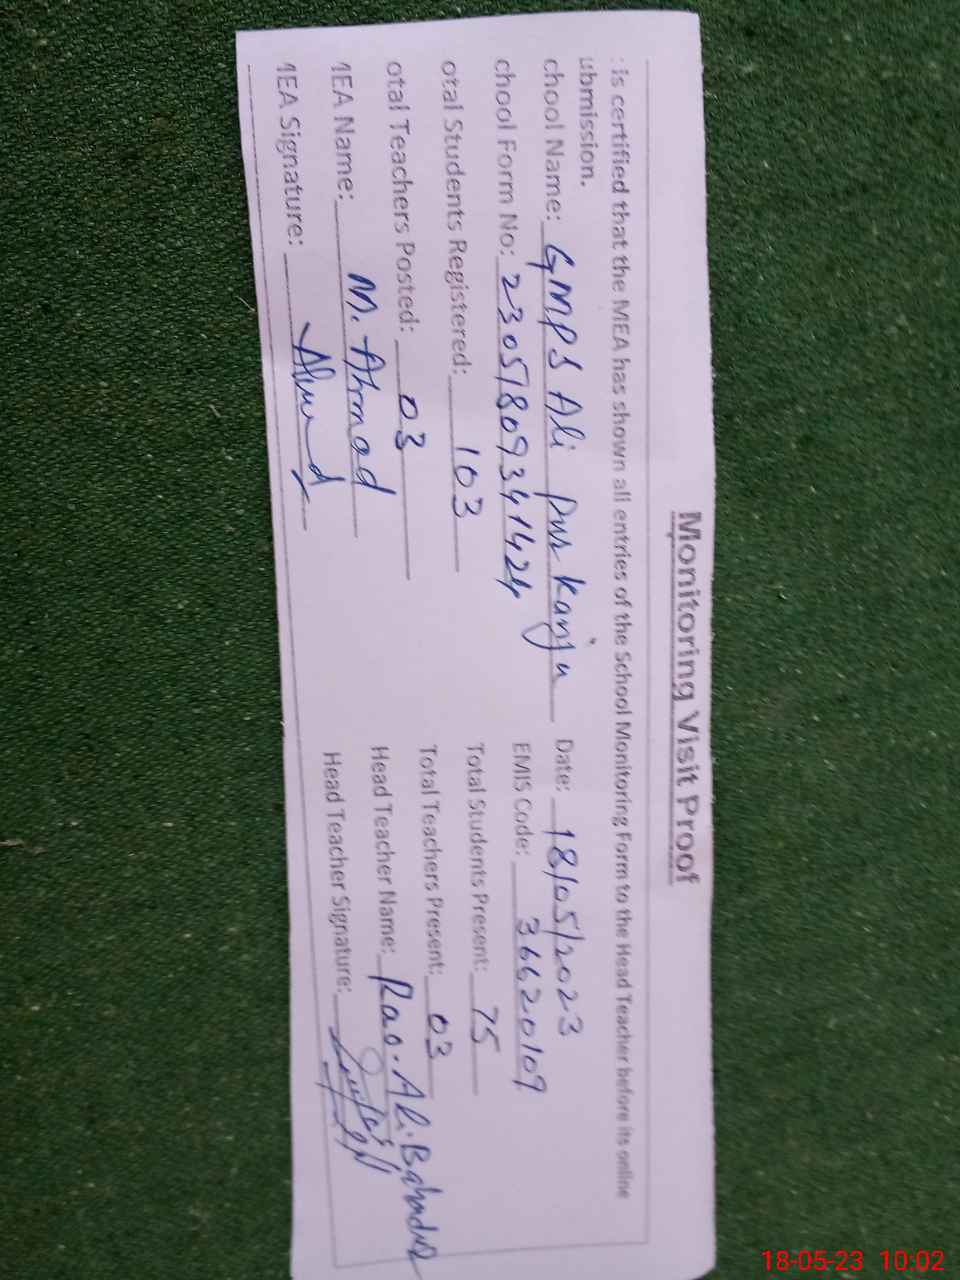 Monitoring Visit Proof
is certified that the MEA has shown all entries of the School Monitoring Form to the Head Teacher before its online
ubmission.
chool Name: GMPS Ali Pur Kanju Date: 18/05/2023
chool Form No: 23051809341424 EMIS Code: 36620109
otal Students Registered: 103 Total Students Present: 75
otal Teachers Posted: 03 Total Teachers Present: 03
MEA Name: M. Ahmad Head Teacher Name: Rao. Ali. Bahadur
MEA Signature: Ahmad Head Teacher Signature:
18-05-23 10:02